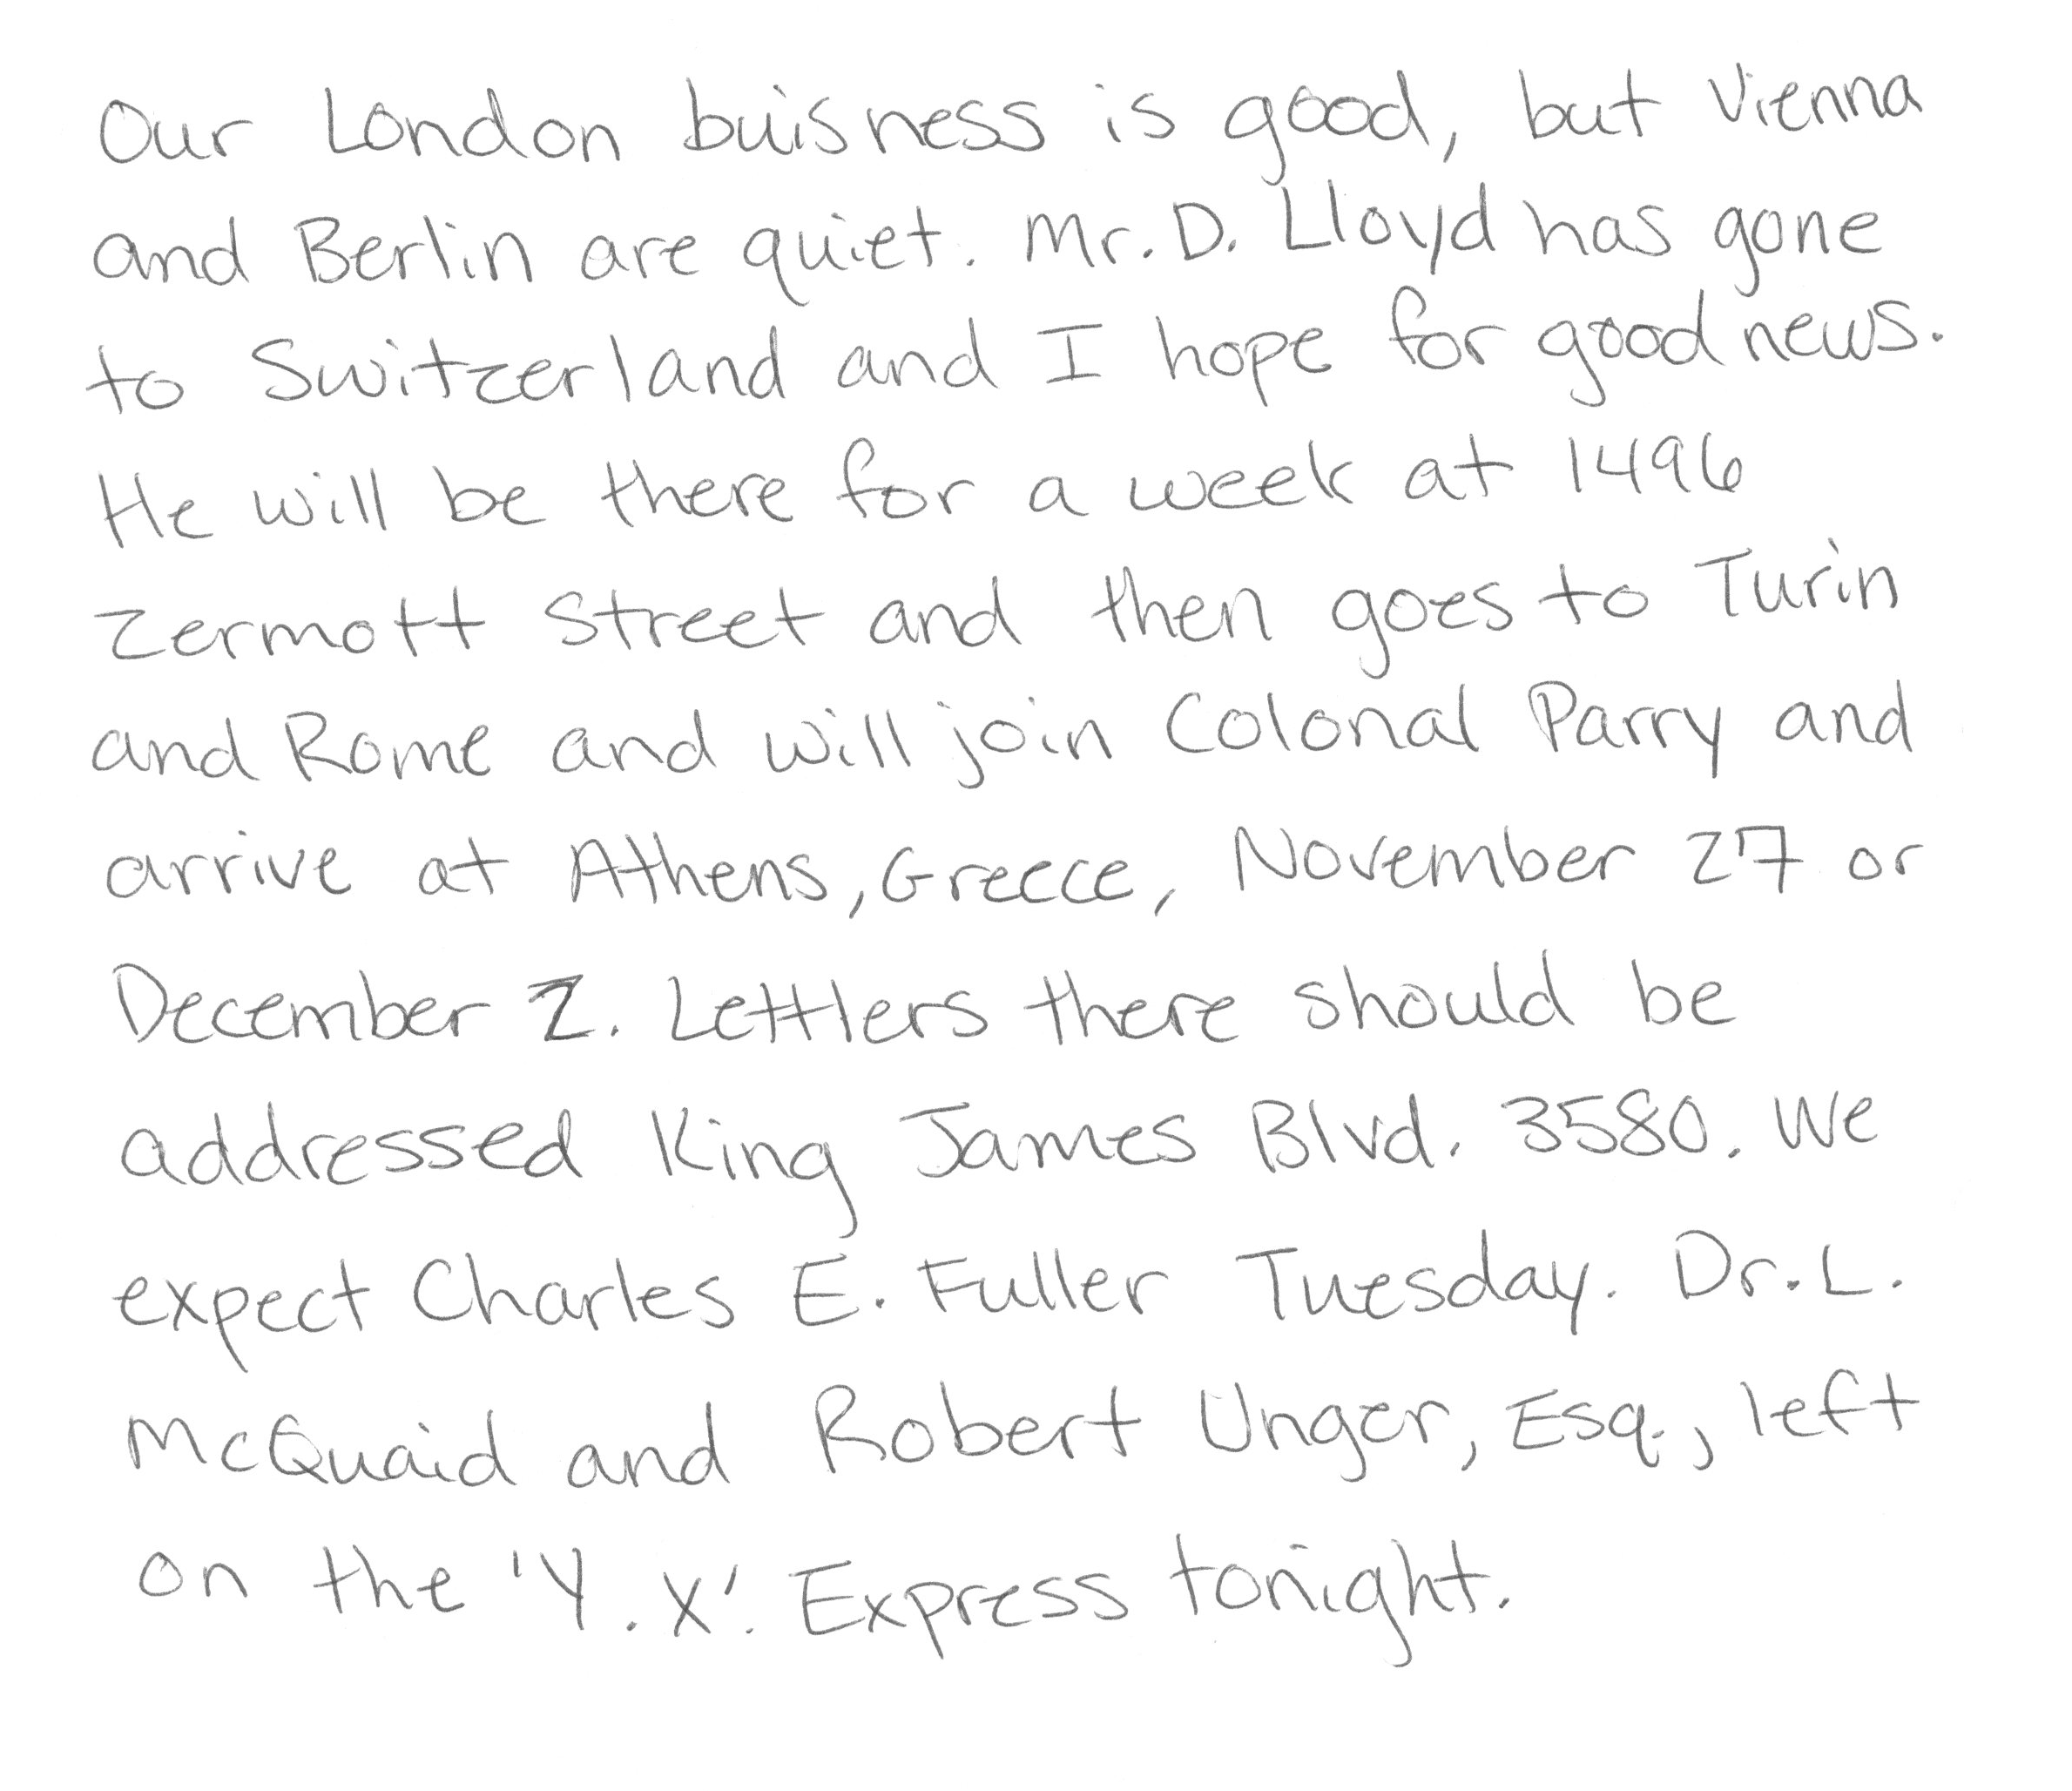 Our London buisness is good, but Vienna
and Berlin are quiet. Mr. D. Lloyd has gone
to Switzerland and I hope for good news.
He will be there for a week at 1496
Zermott Street and then goes to Turin
and Rome and will join Colonal Parry and
arrive at Athens, Greece, November 27 or
December 2. Lettlers there should be
addressed King James Blvd. 3580. We
expect Charles E. Fuller Tuesday. Dr. L.
McQuaid and Robert Unger, Esq., left
on the 'Y.X.' Express tonight.